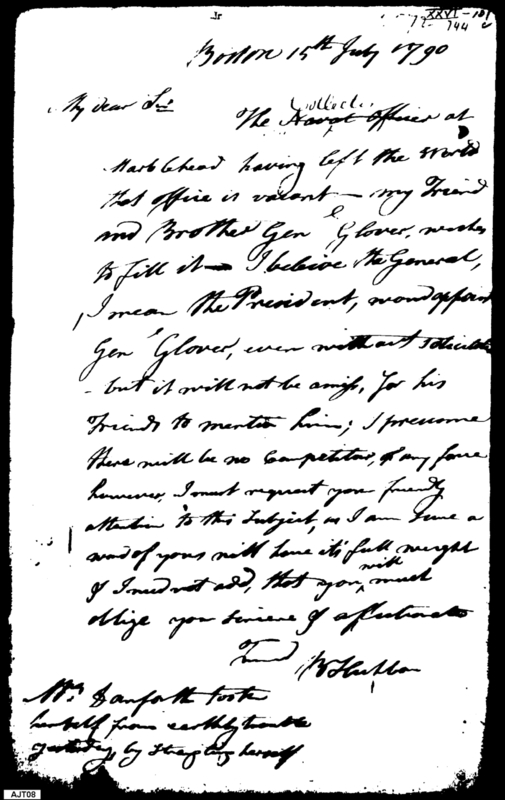 XXVI - 101
744
Boston 15th July 1790
My dear Sir
Collector
The Naval Officer at
Marblehead having left the World
that office is vacant — my Friend
and Brother Genl Glover, wishes
to fill it — I beleive the General,
I mean the President, woud appoint
Genl Glover, even without solicitation
- but it will not be amiss, for his
Friends to mention him; I presume
there will be no Competitor, of any force
however, I must request your friendly
attention to this Subject, as I am sure a
word of yours will have it's full weight
& I need not add, that you will much
oblige your sincere & affectionate
Friend
Mrs Danforth took
herself from earthly trouble
yesterday, by
herself
AJT08